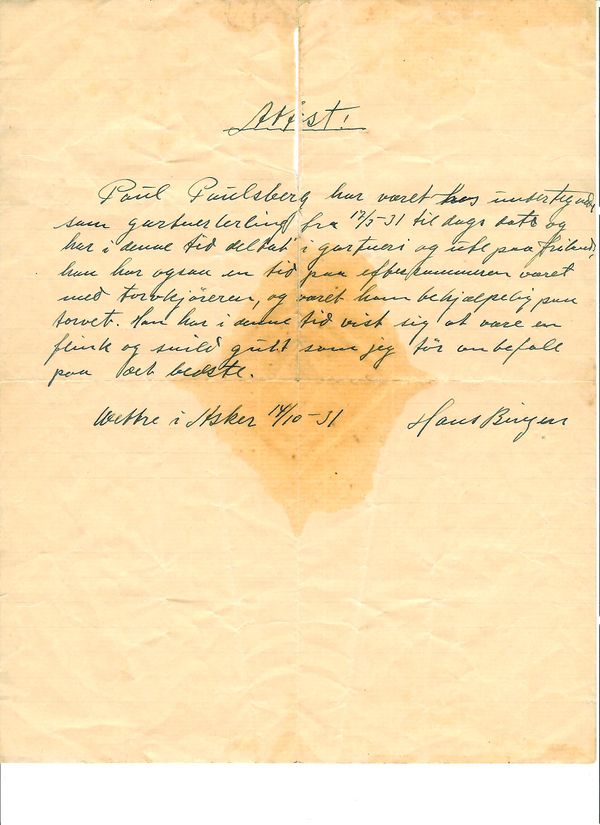 Attest!
Paul Paulsberg har været hos undertegnede
som gartnerlerling fra 17/3-31 til dags dato og
har i denne tid deltat i gartneri og ute paa friland,
han har ogsaa en tid paa eftersommeren været
med torvkjøreren, og været ham behjælpelig paa
torvet. Han har i denne tid vist sig at være en
flink og snild gutt som jeg tör anbefale
paa det bedste.
Wettre i Asker 14/10-31 Hans Bingen